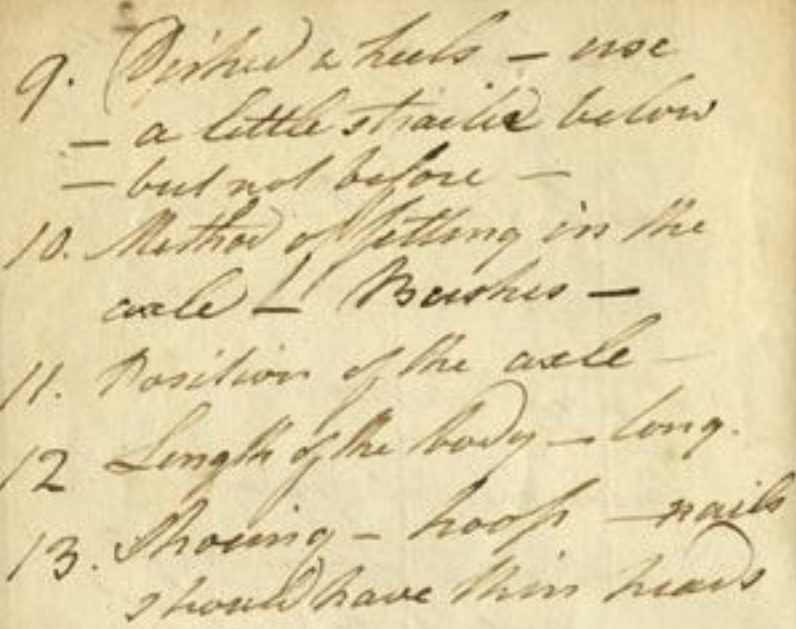 9. Dished wheels – use
– a little straiter below
– but not before –
10. Method of setting in the
axle – Bushes –
11. Position of the axle –
12 Length of the body – long.
13. Shoeing – hoop – nails
should have thin heads